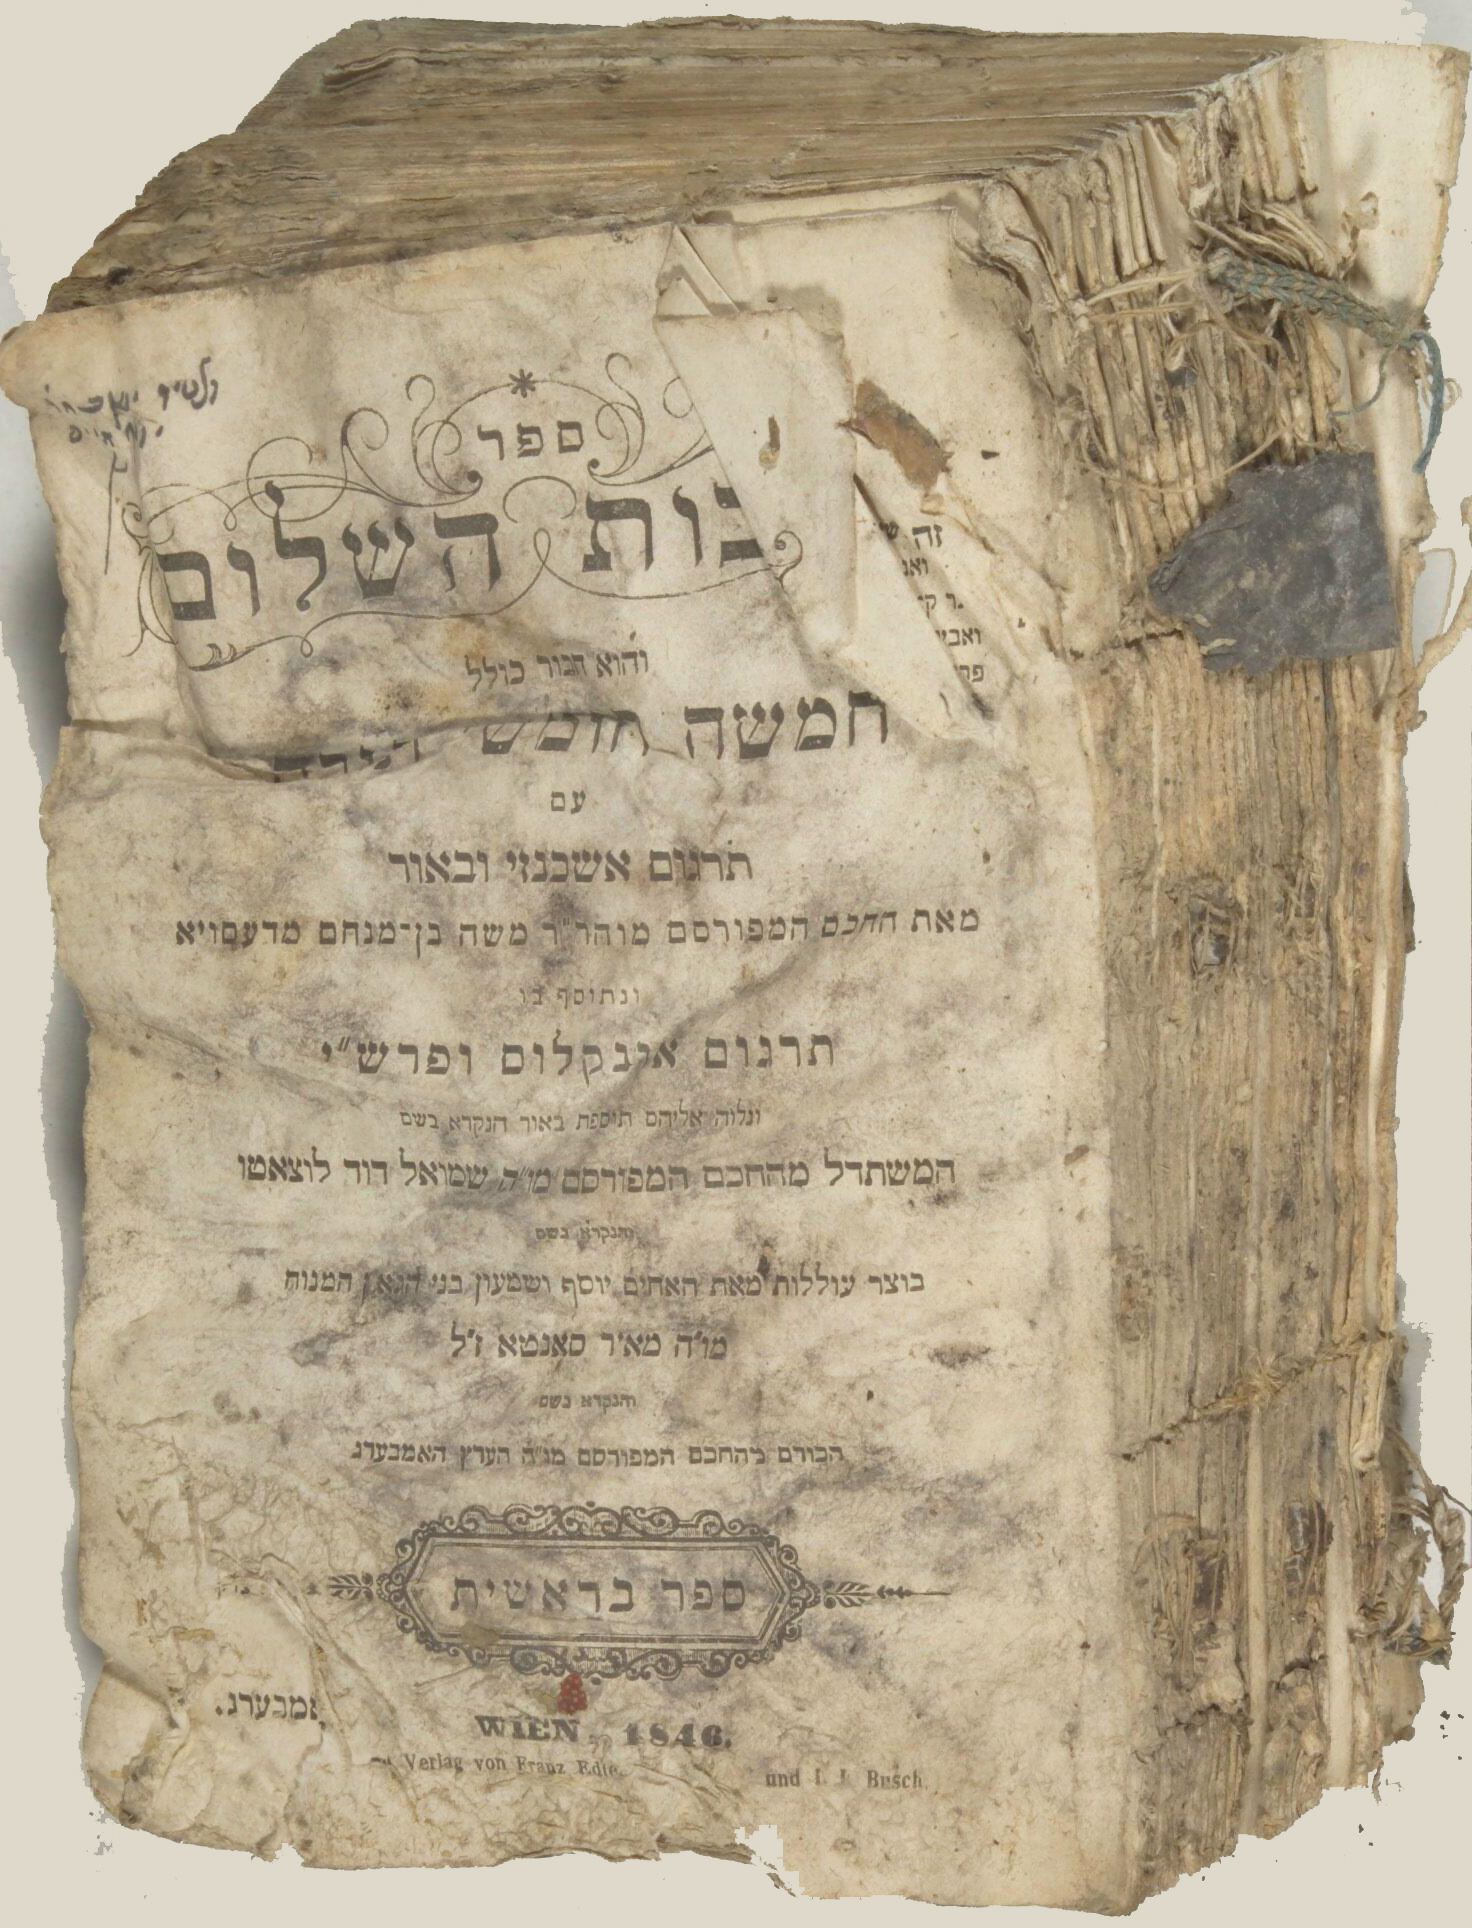 ספר
נתיבות השלום
והוא חבור כולל
חמשה חומשי תורה
עם
תרגום אשכנזי ובאור
מאת החכם המפורסם מוהר״ר משה בן־מנחם מדעסויא
ונתוסף בו
תרגום אונקלוס ופרש״י
ונלוה אליהם תוספת באור הנקרא בשם
המשתדל מהחכם המפורסם מו״ה שמואל דוד לוצאטו
והנקרא בשם
בוצר עוללות מאת האחים יוסף ושמעון בני הגאון המנוח
מו״ה מאיר סאנטא ז״ל
והנקרא בשם
הכורם מהחכם המפורסם מו״ה הערץ האמבערג
ספר בראשית
אמבערג.
WIEN, 1846.
Verlag von Franz Edle. und I. J. Busch.
זה